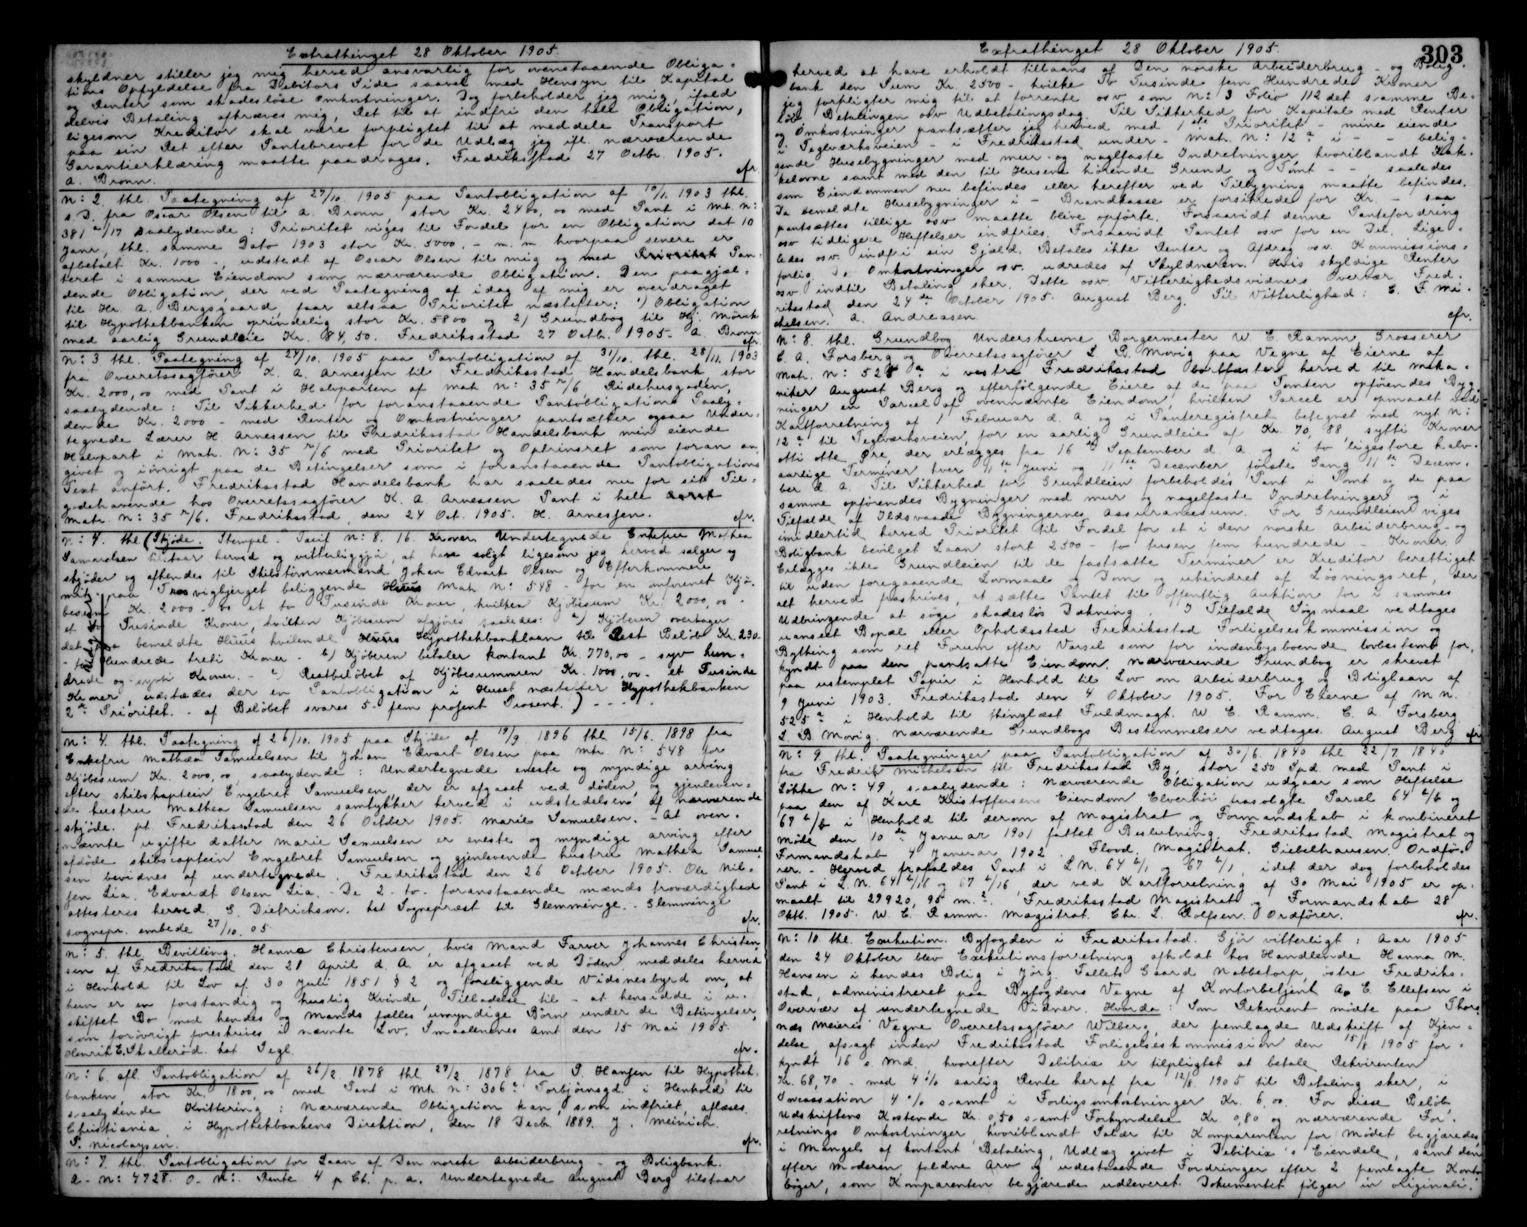 Extrathinget 28 Oktober 1905.
skyldner stiller jeg mig herved ansvarlig for ovenstaaende Obliga-
tions Opfyldelse fra Debitors Side saavel med Hensyn til Kapital
og Renter som skadesløse Omkostninger. Dog forbeholder jeg mig, ifald
delvis Betaling afkræves mig, Ret til at indfri den hele Obligation,
ligesom Kreditor skal være forpligtet til at meddele Transport
paa sin Ret efter Pantebrevet for de Udlæg jeg ifl. nærværende
Garantierklæring maatte paadrages. Fredrikstad 27 Octbr. 1905.
A. Brønn. efr.
N: 2. thl. Paategning af 27/10 1905 paa Pantobligation af 10/11 1903 thl.
s. D. fra Oscar Olsen til A. Brønn, stor Kr. 2400,00 med Pant i Mt. N:
381 a/17 saalydende: Prioritet viges til Fordel for en Obligation dat 10
Janr, thl. samme Dato 1903 stor Kr. 5000,- m. m. hvorpaa senere er
afbetalt Kr. 1000 -, udstedt af Oscar Olsen til mig og med Prioritet Pan-
teret i samme Eiendom som nærværende Obligation. Den paagjæl-
dende Obligation, der ved Paategning af idag af mig er overdraget
til Hr. A. Bergsgaard, faar altsaa Prioritet næstefter: 1) Obligation
til Hypothekbanken oprindelig stor Kr. 5800 og 2) Grundbog til Hj. Mørch
med aarlig Grundleie Kr. 84,50. Fredriksstad 27 Octb. 1905. A. Brønn
efr.
N: 3 thl. Paategning af 27/10. 1905 paa Pantobligation af 31/10. thl. 28/11. 1903
fra Overretssagfører K. A. Arnesen til Fredriksstad Handelsbank stor
Kr. 2000,00 med Pant i Halvparten af mat N: 35 /6 Ridehusgaden,
saalydende: Til Sikkerhed for foranstaaende Pantobligations Paaly-
dende Kr. 2000 - med Renter og Omkostninger pantsætter ogsaa Under-
tegnede Lærer H Arnessen til Fredriksstad Handelsbank min eiende
Halvpart i Mat. N: 35 /6 med Prioritet og Optrinsret som foran an-
givet og iøvrigt paa de Betingelser som i foranstaaende Pantobligations
Text anført. Fredriksstad Handelsbank har saaledes nu for sit Til-
godehavende hos Overretssagfører K. A. Arnessen Pant i hele
Matr. N: 35 /6. Fredriksstad, den 24 Oct. 1905. H. Arnessen. efr.
N: 4. thl (Skjøde. Stempel. Tarif N: 8. 16. Kroner Undertegnede Enkefru Mathea
Samuelsen tilstaar herved og vitterliggjør, at have solgt ligesom jeg herved sælger og
skjøder og afhendes til Skibstømmermand Johan Edvart Olsen og Efterkommere
mit paa Trosvigbjerget beliggende Huus Mat N: 548 - for en omforenet Kjø-
besum Kr. 2000 - 00 at to Tusinde Kroner, hvilken Kjøbesum Kr 2000,00
et Tusinde Kroner, hvilken Kjøbesum afgjøres saaledes: a) Kjøberen overtager
det paa bemeldte Huus hvilende Hypothekbanklaan til Rest Beløb Kr. 230.-
- to Hundrede treti Kroner - b) Kjøberen betaler kontant Kr. 770,00 - syv hun-
drede og sytti Kroner. - c) Restbeløbet af Kjøbesummen Kr. 1000,00 - et Tusinde
Kroner, udstædes der en Pantobligation i Huset næstefter Hypothekbanken
2den Prioritet - af Beløbet svares 5 - fem prosent Prosent.) - - - .
N: 4. thl. Paategning af 26/10. 1905 paa Skjøde af 19/9 1896 thl 15/6. 1898 fra
Enkefru Mathea Samuelsen til Johan Edvart Olsen paa Mtr. N: 548 for
Kjøbesum Kr. 2000,00 saalydende: Undertegnede eneste og myndige arving
efter skibskaptein Engebret Samuelsen, der er afgaaet ved døden, og gjenleven-
de hustru Mathea Samuelsen samtykker herved i udstedelsen af nærværende
skjøde. pt Fredriksstad den 26 October 1905. Marie Samuelsen. - At oven-
nævnte ugifte datter Marie Samuelsen er eneste og myndige arving efter
afdøde skibscaptein Engebret Samuelsen og gjenlevende hustru Mathea Samuel-
sen bevidnes af undertegnede. Fredriksstad den 26 October 1905. Ole Nil-
sen Lia. Edvardt Olsen Lia. - De 2 - to - foranstaaende mænds troværdighed
attesteres herved, G. Dietrichson. kst Sognepræst til Glemminge. - Glemminge
sognepr. embede 27/10. 05 efr.
N: 5. thl. Bevilling. Hanna Christensen, hvis Mand Farver Johannes Christen-
sen af Fredriksstad den 21 April d. A. er afgaaet ved Døden, meddeles herved
i Henhold til Lov af 30 Juli 1851 § 2 og foreliggende Vidnesbyrd om, at
hun er en forstandig og huslig Kvinde, Tilladelse til - at hensidde i u-
skiftet Bo med hendes og Mands fælles umyndige Børn under de Betingelser,
som forøvrigt foreskrives i nævnte Lov. Smaalenenes Amt den 15 Mai 1905.
Henrik E. Skallerød. kst Segl. efr.
N: 6. afl. Pantobligation af 26/2 1878 thl 27/2 1878 fra P. Hansen til Hypothek-
banken, stor Kr. 1800,00 med Pant i Mt N: 306 a Torbjørnsgd. i Henhold til
saalydende Kvittering: Nærværende Obligation kan, som indfriet, aflæses
Christiania i Hypothekbankens Direktion, den 18 Decb. 1889. J. Meinich.
P. Nicolaysen. efr.
N: 7. thl. Pantobligation for Laan af Den norske Arbeiderbrug- og Boligbank.
A- N: 4728. O- N:. Rente 4 p Ct. p. a. Undertegnede August Berg tilstaar
Extrathinget 28 Oktober 1905.
303
herved at have erholdt tillaans af Den norske Arbeiderbrug - og Bolig-
bank den Sum Kr. 2500 - hvilke To Tusinde fem Hundrede Kroner
jeg forpligter mig til at forrente osv som N: 3 Folio 112 det samme Be-
løb / Betalingen osv Udbetalingsdag. Til Sikkerhed for Kapital med Renter
og Omkostninger pantsætter jeg herved med 1ste Prioritet - mine eiende
i Teglværksveien - i Fredriksstad under - Mat. N: 12 a i - - belig-
gende Husebygninger med mur- og naglfaste Indretninger hvoriblandt Kak-
kelovne samt med den til Husene hørende Grund og Tomt - - saaledes
som Eiendommen nu befindes eller herefter ved Tilbygning maatte befindes.
Da bemeldte Husebygninger i - Brandkasse er forsikrede for Kr. - saa
pantsættes tillige osv maatte blive opførte. Forsaavidt denne Pantefordring
osv tidligere Heftelser indfries. Forsaavidt Pantet osv for en Del. Lige-
ledes osv. indfri sin Gjæld. Betales ikke Renter og Afdrag osv. Kommissions-
forlig. De Omkostninger osv. udredes af Skyldneren. Hvis skyldige Renter
osv indtil Betaling sker. Dette osv. Vitterlighedsvidners Overvær. Fred-
rikstad den 24de October 1905. August Berg. Til Vitterlighed: E. F Mi-
chelsen. A. Andreasen efr.
N: 8. thl. Grundbog Underskrevne Borgermester W. C. Ramm, Grosserer
C. A. Forsberg og Overretssagfører L B. Movig paa Vegne af Eierne af
Mat. N: 525 a i vestre Fredriksstad bortfæster herved til meka-
niker August Berg og efterfølgende Eiere af de paa Tomten opførendes Byg-
ninger en Parcel af ovennævnte Eiendom hvilken Parcel er opmaalt ved
Kartforretning af 1 Februar d. A og i Panteregistret betegnet med nyt N:
12 a til Teglværksveien, for en aarlig Grundleie af Kr. 70,88 sytti Kroner
otti otte Øre, der erlægges fra 16de September d A og i to ligestore halv-
aarlige Terminer hver 11te Juni og 11te December, første Gang 11te Decem-
ber d. A. Til Sikkerhed for Grundleien forbeholdes Pant i Tomt og de paa
samme opførendes Bygninger med mur og nagelfaste Indretninger og i
Tilfælde af Ildsvaade Bygningernes Assurancesum. For Grundleien viges
imidlertid herved Prioritet til Fordel for et i den norske Arbeiderbrug- og
Boligbank bevilget Laan stort 2500 - to tusen fem hundrede - Kroner.
Erlægges ikke Grundleien til de fastsatte Terminer er Kreditor berettiget
til uden foregaaende Lovmaal og Dom og uhindret af Løsningsret der
ret herved fraskrives, at sætte Pantet til offentlig Auktion for i sammes
Udbringende at søge skadesløs Dækning. I Tilfælde Søgsmaal vedtages
uanset Bopæl eller Opholdssted Fredriksstad Forligelseskommission og
Bything som ret Forum efter Varsel som for indenbysboende lovbestemt for-
kyndt paa den pantsatte Eiendom. Nærværende Grundbog er skrevet
paa ustemplet Papir i Henhold til Lov om Arbeiderbrug og Boliglaan af
9 Juni 1903. Fredriksstad den 4 Oktober 1905. For Eierne af M. N.
525 a i Henhold til thinglæst Fuldmagt. W C. Ramm. C. A. Forsberg
L B. Movig. Nærværende Grundbogs Bestemmelser vedtages. August Berg efr
N: 9. thl. Paategninger paa Pantobligation af 30/6 1840 thl 22/7. 1840
fra Fredrik Mithelsen til Fredriksstad By, stor 250 Spd. med Pant i
Løkke N: 49, saalydende: Nærværende Obligation udgaar som Heftelse
paa den af Karl Kristoffersens Eiendom Elverhøi frasolgte Parcel 64 b/6 og
67 b/6 i Henhold til derom af Magistrat og Formandskab i kombineret
møde den 10de Januar 1901 fattet Beslutning. Fredriksstad Magistrat og
Formandskab 4 Januar 1902. Flood, Magistrat. Giebelhausen. Ordfø-
rer. - Herved frafaldes Pant i L.N. 64 b/1 og 67 b/1, idet der dog forbeholdes
Pant i L. N. 64 b/16 og 67 b/16, der ved Kartforretning af 30 Mai 1905 er op-
maalt til 29920,95 m.². Fredriksstad Magistrat og Formandskab 28
Oktb. 1905. W. C. Ramm. Magistrat. Chr. L. Rolfsen. Ordfører. efr.
N: 10. thl. Exekution. Byfogden i Fredriksstad. Gjør vitterligt: Aar 1905
den 24 Oktober blev Exekutionsforretning afholdt hos Handlende Hanna M.
Hansen i hendes Bolig i Jørg. Tallets Gaard Nabbetorp, østre Fredriks-
stad, administreret paa Byfogdens Vegne af Kontorbetjent A. E Ellefsen i
Overvær af undertegnede Vidner. Hvorda: Som Rekvirent mødte paa Thors-
næs meieris Vegne Overretssagfører Wilberg, der fremlagde Udskrift af Kjen-
delse, afsagt inden Fredriksstad Forligelseskommission den 15/8 1905 for-
kyndt 16 s. Md. hvorefter Debitrix er tilpligtet at betale Rekvirenten
Kr. 68,70 - med 4 % aarlig Rente heraf fra 12/8. 1905 til Betaling sker, i
4 % samt i Forligsomkostninger Kr. 6,00. For disse Beløb
Udskriftens Kostende Kr. 0,50 samt Forkyndelse Kr. 0,80 og nærværende For-
retnings Omkostninger, hvoriblandt Salær til Komparenten for Mødet begjæredes
i Mangel af kontant Betaling, Udlæg givet i Debitrix's Eiendele, samt den
efter Moderen faldne Arv og udestaaende Fordringer efter 2 fremlagte Konto-
bøger, som Komparenten begjærede udleveret. Dokumentet følger in originali.